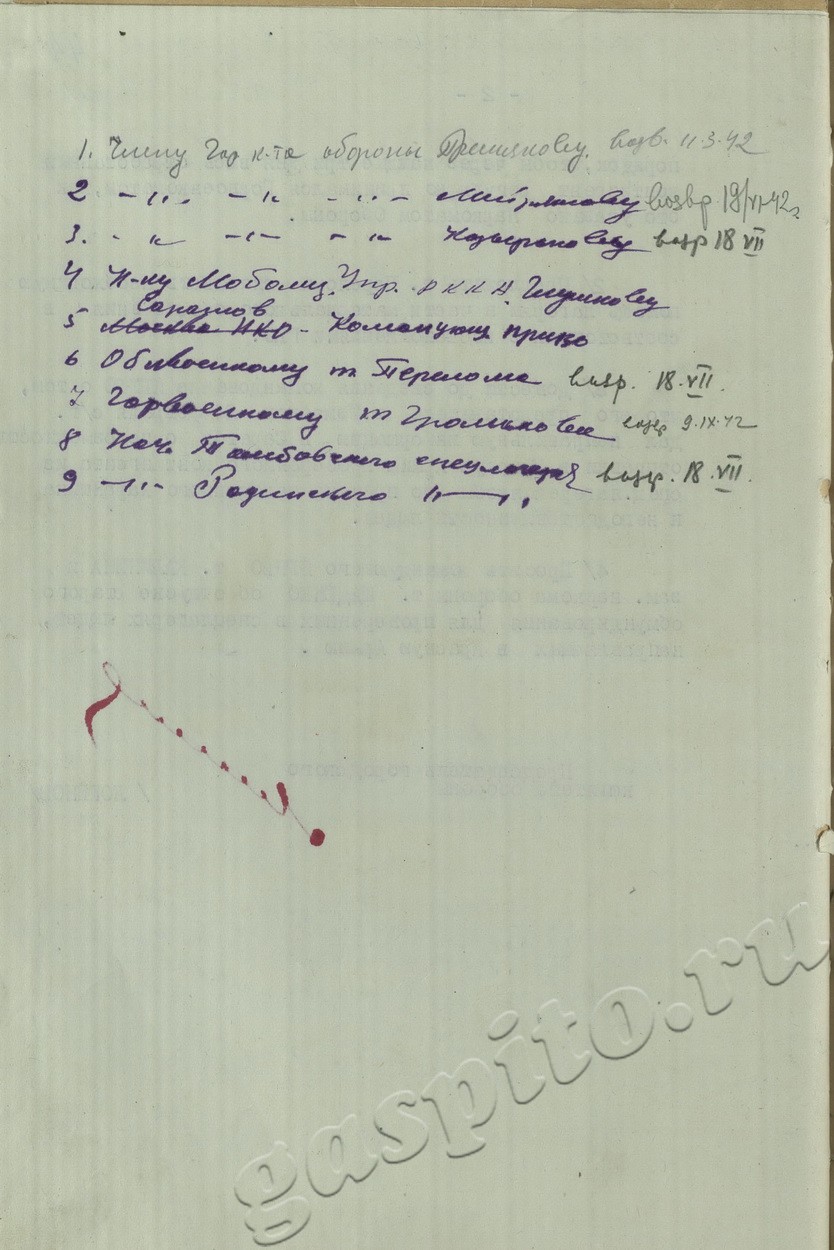 1. Члену Гор к-та обороны возв. 11.3.42
2 -"- -"- -"- возвр 19/VI-42г
3. -"- -"- -"- Козырькову возвр 18 VII
4 Н-ку Мобилиз. Упр. РККА
Саратов
5 Москва НКО - Команующ приво
6 Облвоенкому т Перелома возвр. 18.VII.
7 Горвоенкому т Громыкову возвр 9.IX.42
8 Нач. Тамбовского спецлагеря возвр. 18.VII.
9 -"- Радинского -"-
gaspito.ru